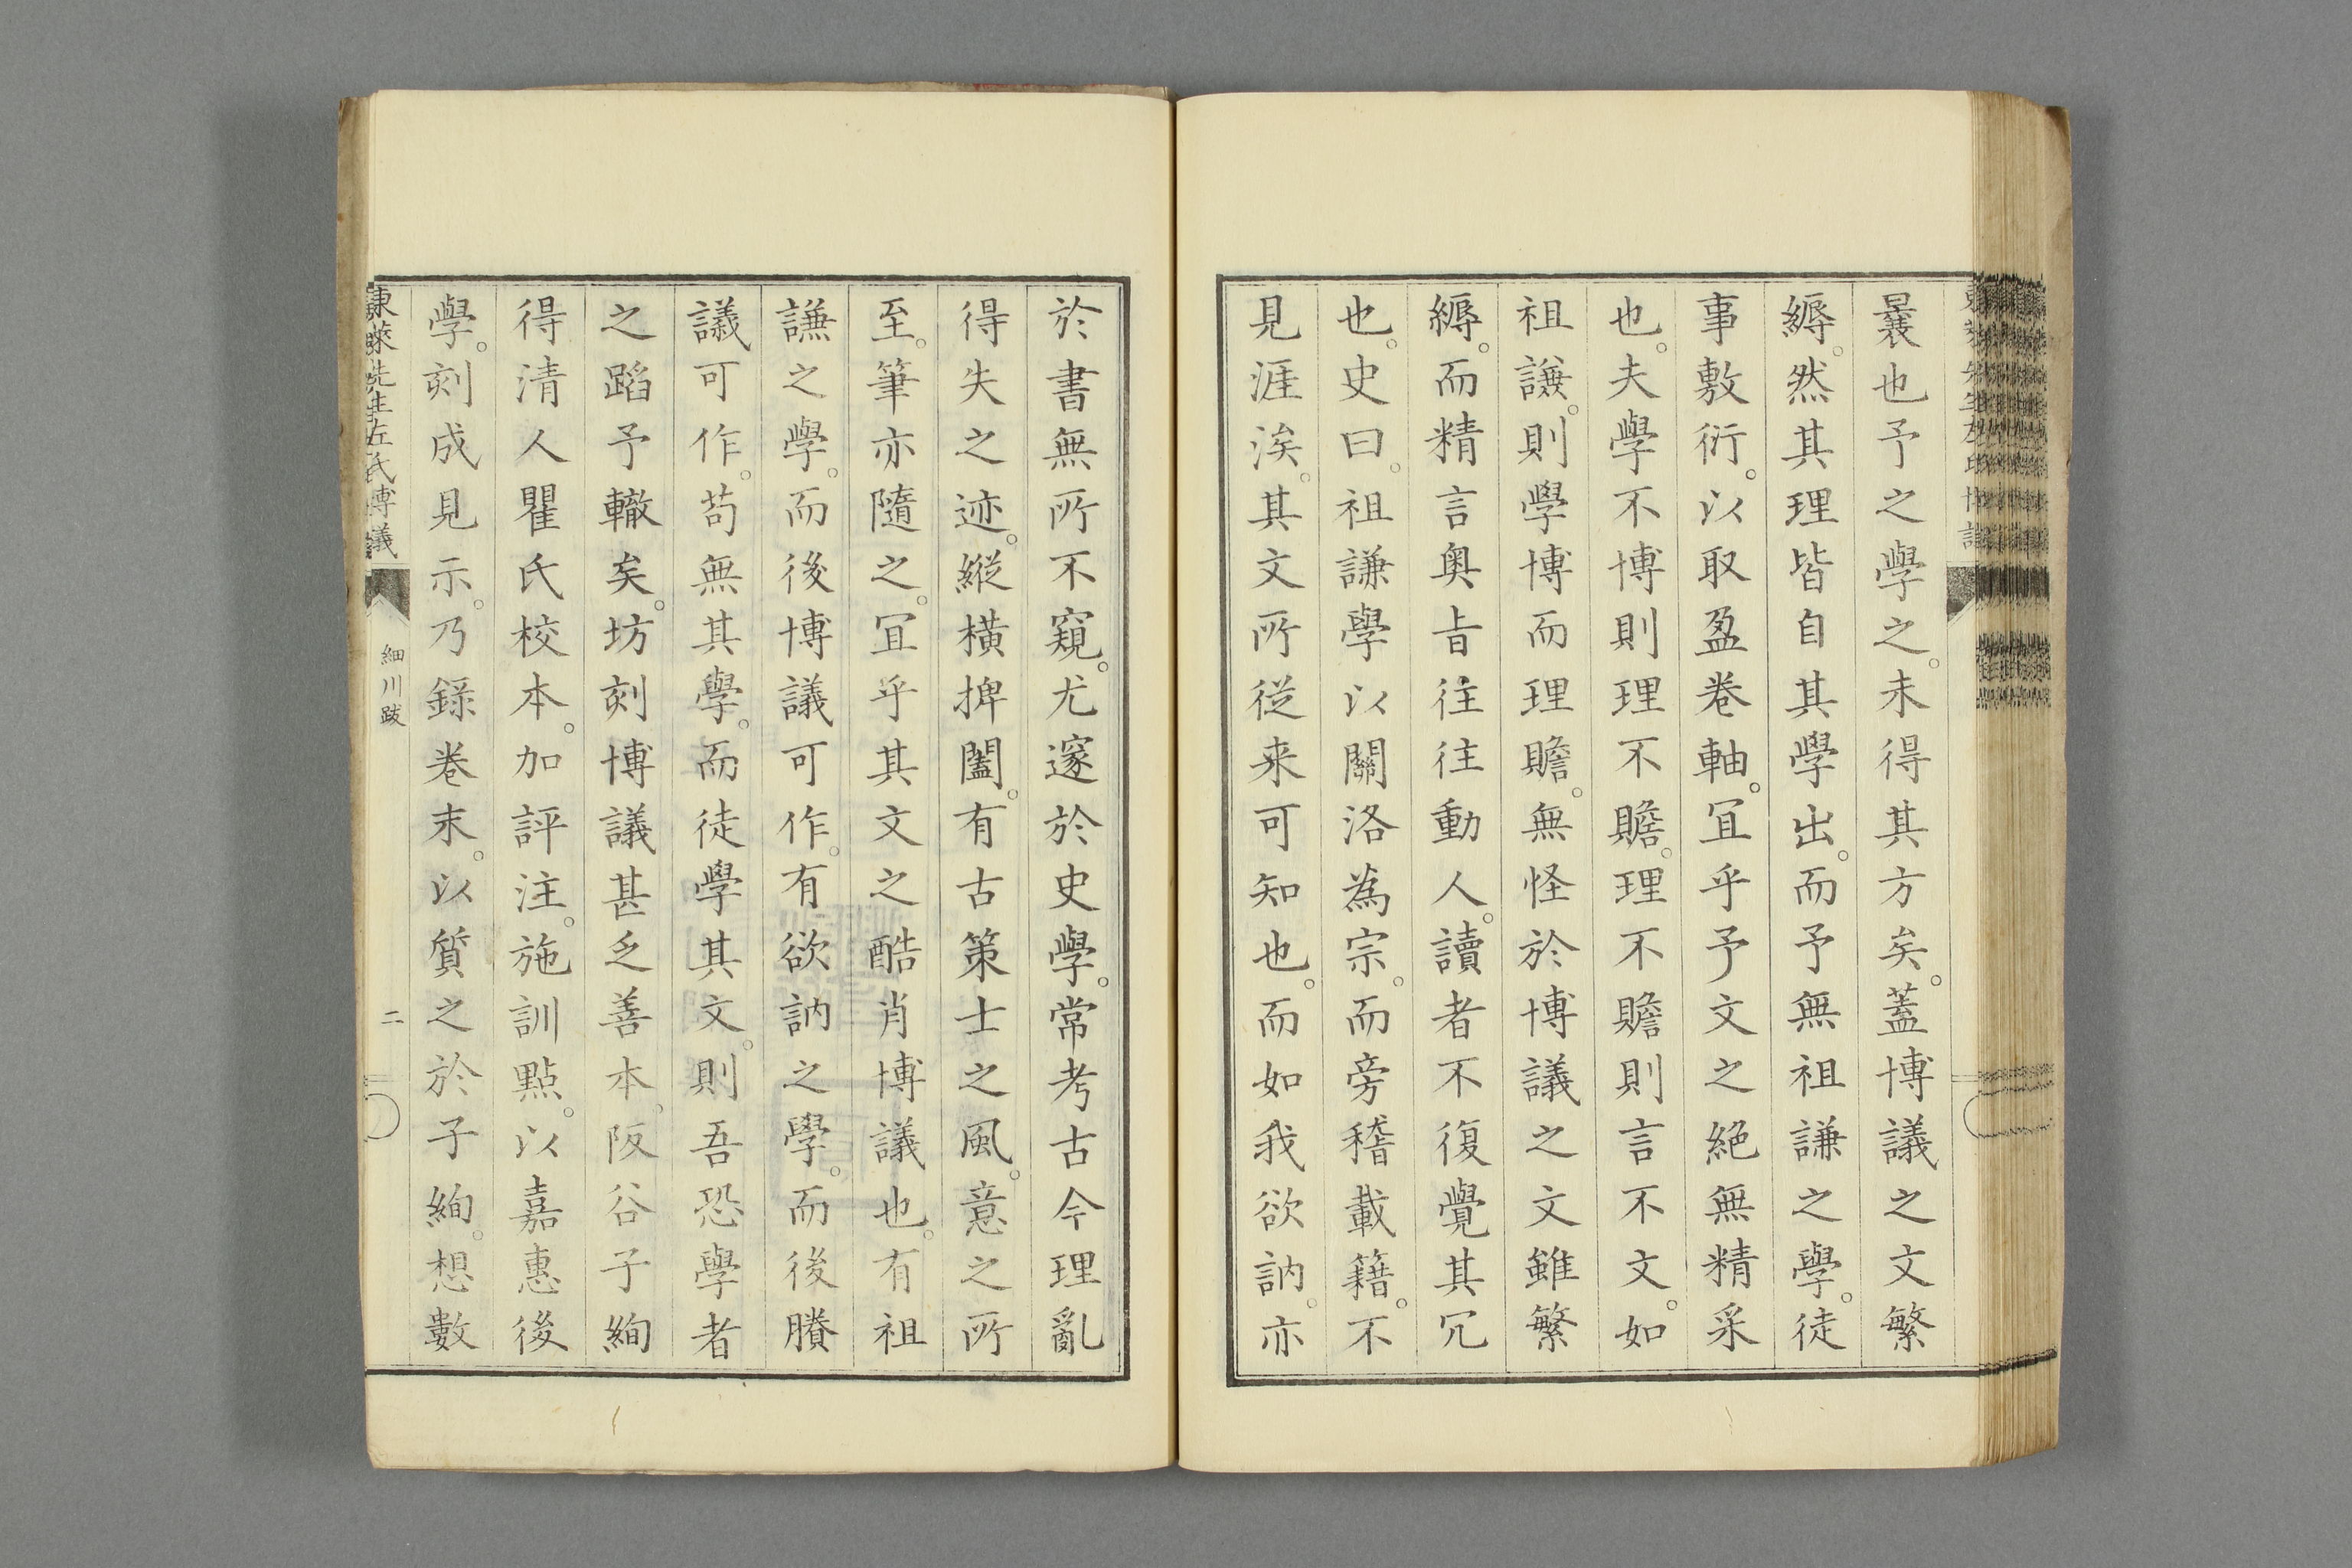 曩也予之學之。未得其方矣。蓋博議之文繁
縟。然其理皆自其學出。而予無祖謙之學。徒
事敷衍。以取盈卷軸。冝乎予文之絶無精采
也。夫學不博則理不贍。理不贍則言不文。如
祖謙。則學博而理贍。無怪於博議之文雖繁
縟。而精言奥旨往往動人。讀者不復覺其冗
也。史曰。祖謙學以關洛為宗。而旁稽載籍。不
見涯涘。其文所從来可知也。而如我欲訥。亦
於書無所不窺。尤邃於史學。常考古今理亂
得失之迹。縱橫捭闔。有古策士之風。意之所
至。筆亦隨之。冝乎其文之酷肖博議也。有祖
謙之學。而後博議可作。有欲訥之學。而後賸
議可作。苟無其學。而徒學其文。則吾恐學者
之蹈予轍矣。坊刻博議甚乏善本。阪谷子絢
得清人瞿氏校本。加評注。施訓點。以嘉惠後
學。刻成見示。乃錄卷末。以質之於子絢。想數
東萊先生左氏博議
細川跋
二